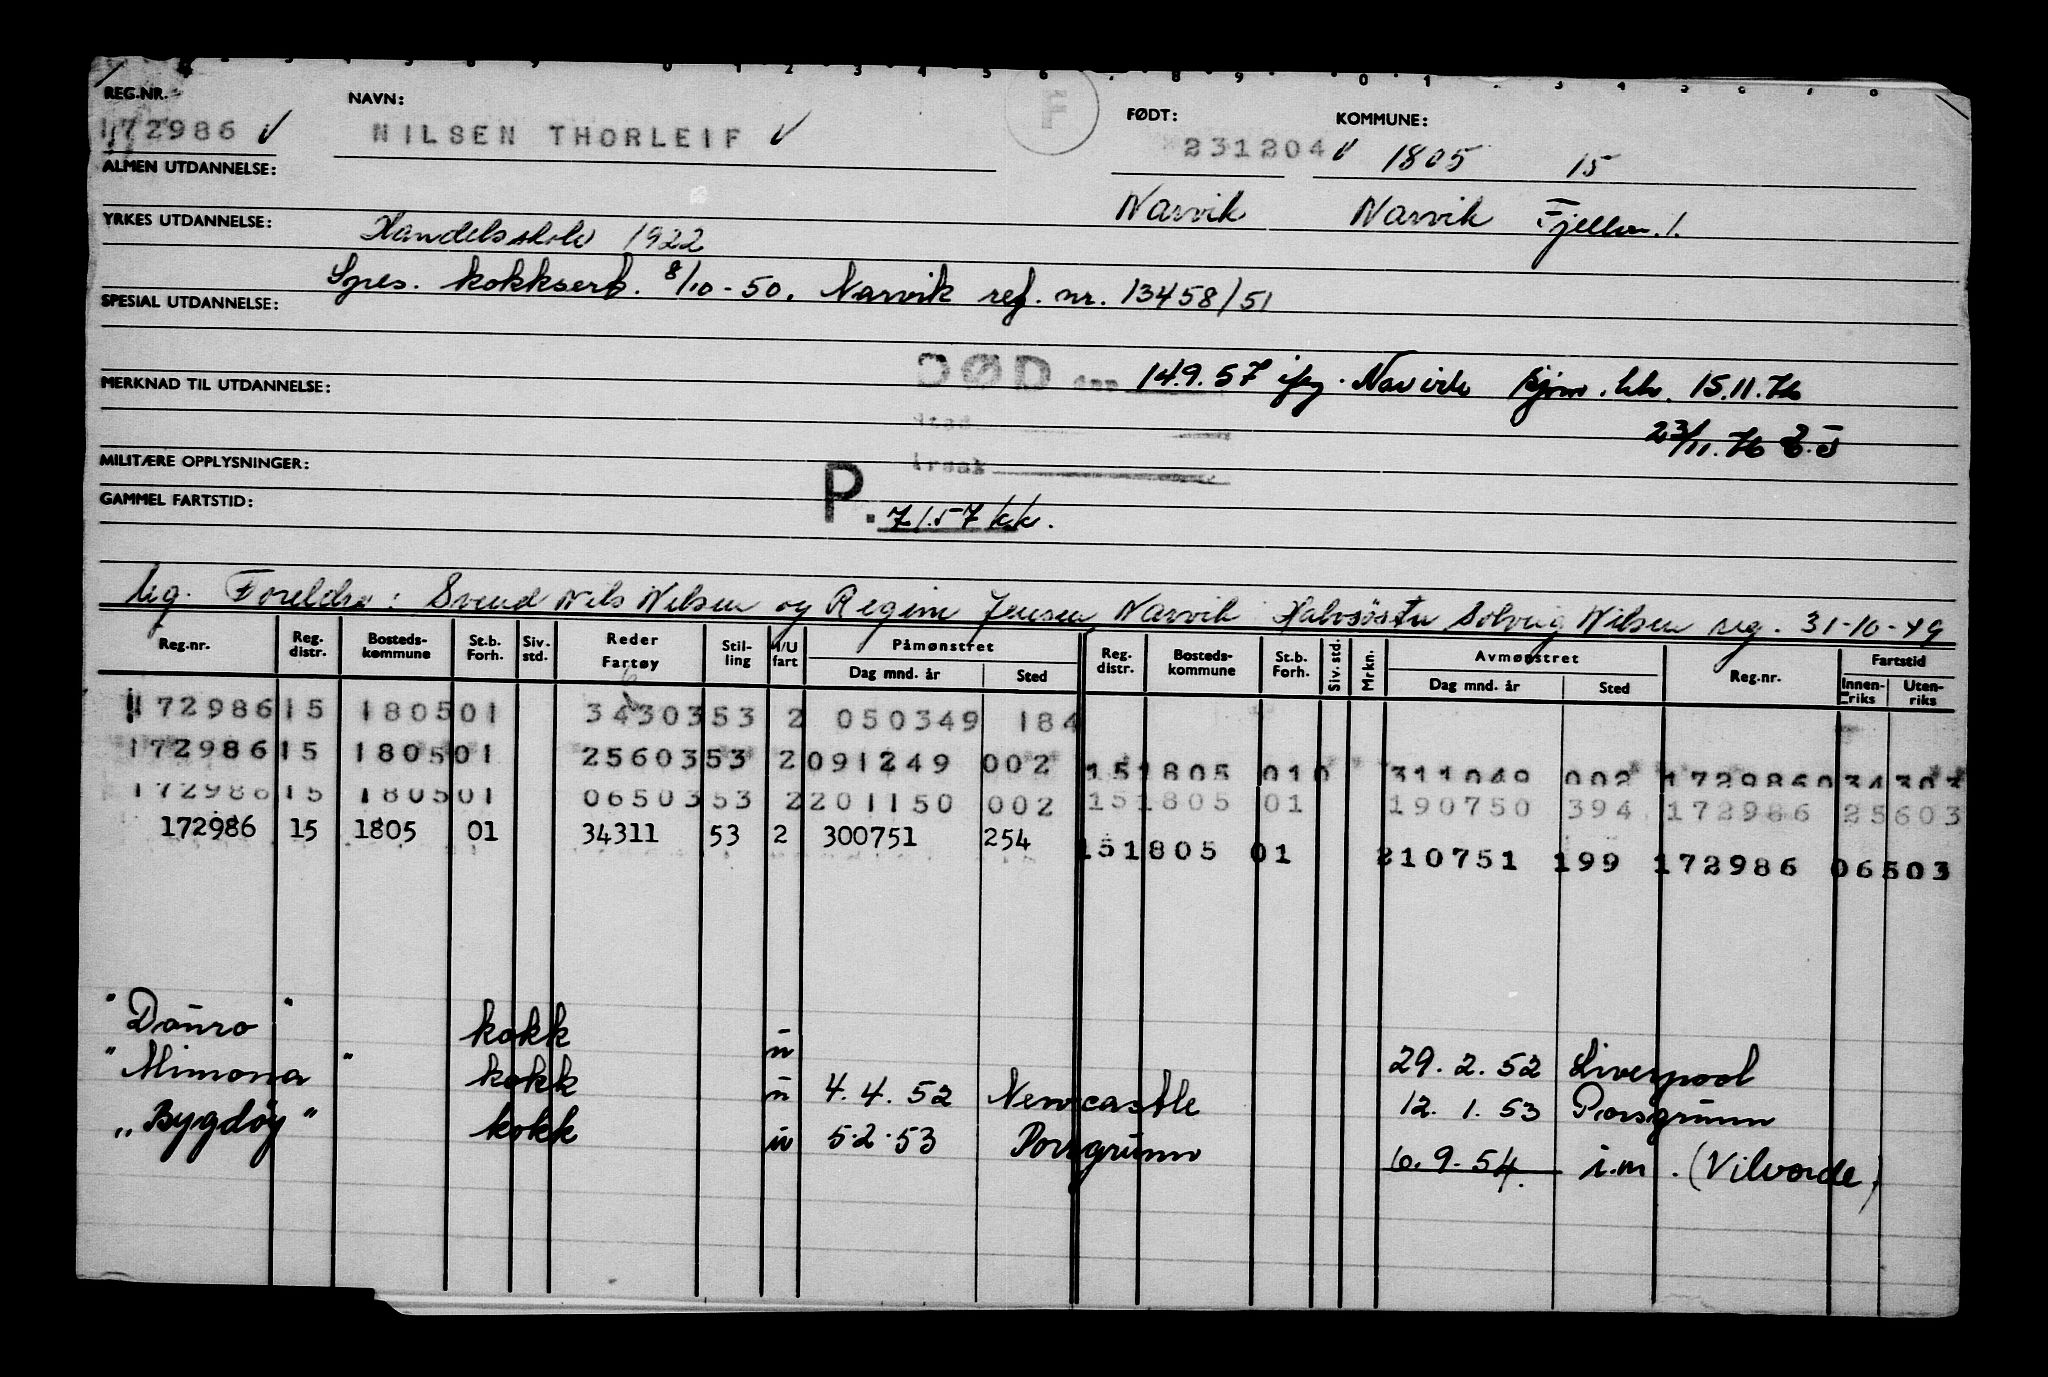 REG.NR. NAVN: F FØDT: KOMMUNE:
172986 NILSEN THORLEIF 231204 1805 15
ALMEN UTDANNELSE:
Narvik Narvik
YRKES UTDANNELSE: Handelsskole 1922
Spes. kokksert. 8/10-50. Narvik ref. nr. 13458/51
SPESIAL UTDANNELSE:
DØD den 14.9.57 Narvik 15.11.76
MERKNAD TIL UTDANNELSE:
Sted
23/11.76
MILITÆRE OPPLYSNINGER: Årsak
GAMMEL FARTSTID: P. 7/1.57 kk.
Ug. Foreldre: Svend Nils Nilsen og Regine Jensen, Narvik Halvsöster Solveig Nilsen reg. 31-10-49
Reg.nr. Reg. distr. Bosteds-kommune St.b. Forh. Siv. std. Reder Fartøy Stil-ling I/U fart Påmønstret Dag mnd. år Sted Reg. distr. Bosteds-kommune St.b. Forh. Siv. std. Mrkn. Avmønstret Dag mnd. år Sted Reg.nr. Fartstid Innen-riks Uten-riks
172986 15 1805 01 34303 53 2 050349 184
172986 15 1805 01 25603 53 2 091249 002 15 1805 01 0 311049 002 172986 0 34303
172986 15 1805 01 06503 53 2 201150 002 15 1805 01 190750 394 172986 25603
172986 15 1805 01 34311 53 2 300751 254 15 1805 01 210751 199 172986 06503
"Douro" kokk u 29.2.52 Liverpool
"Mimona" kokk u 4.4.52 Newcastle 12.1.53 Porsgrunn
"Bygdøy" kokk u 5.2.53 Porsgrunn 6.9.54. i.m. (Vilvorde)